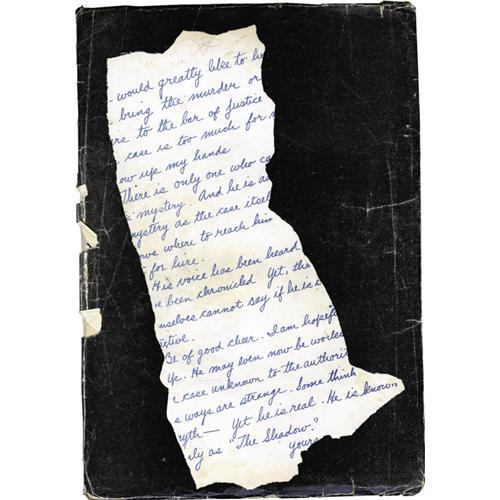 would greatly like to
bring the murder or
ers to the bar of justice
case is too much for m
ow up my hands
There is only one who ca
is mystery. And he is a
mystery as the case itsel
ows where to reach him
t for hire.
His voice has been heard
e been chronicled Yet, the
mselves cannot say if he is
ctive.
Be of good cheer. I am hopef
ye. He may even now be workin
case unknown to the authorit
s ways are strange. Some think
myth— Yet he is real. He is know
ly as "The Shadow."
yours